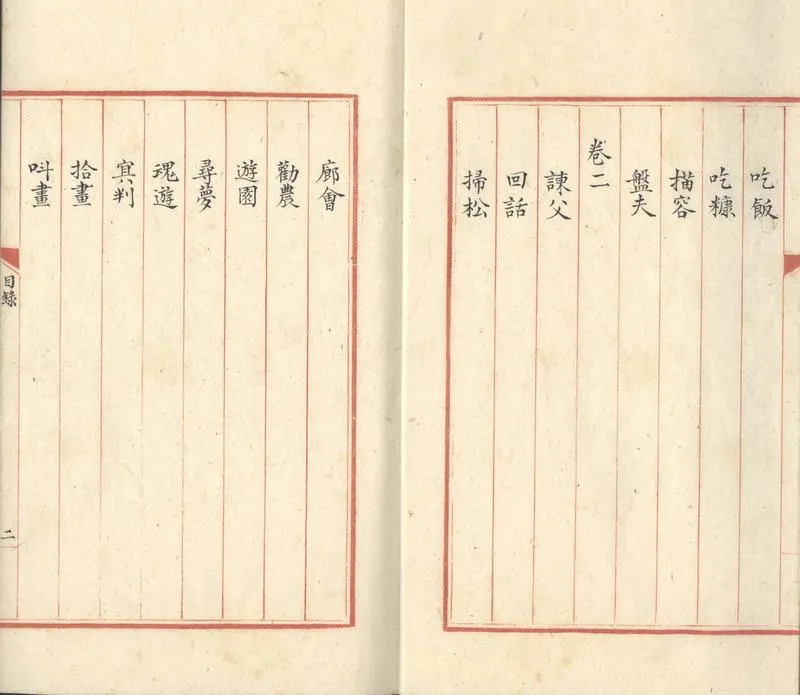 吃飯
吃糠
描容
盤夫
卷二
諫父
回話
掃松
廊會
勸農
遊園
尋夢
魂遊
冥判
拾畫
叫畫
目錄
二